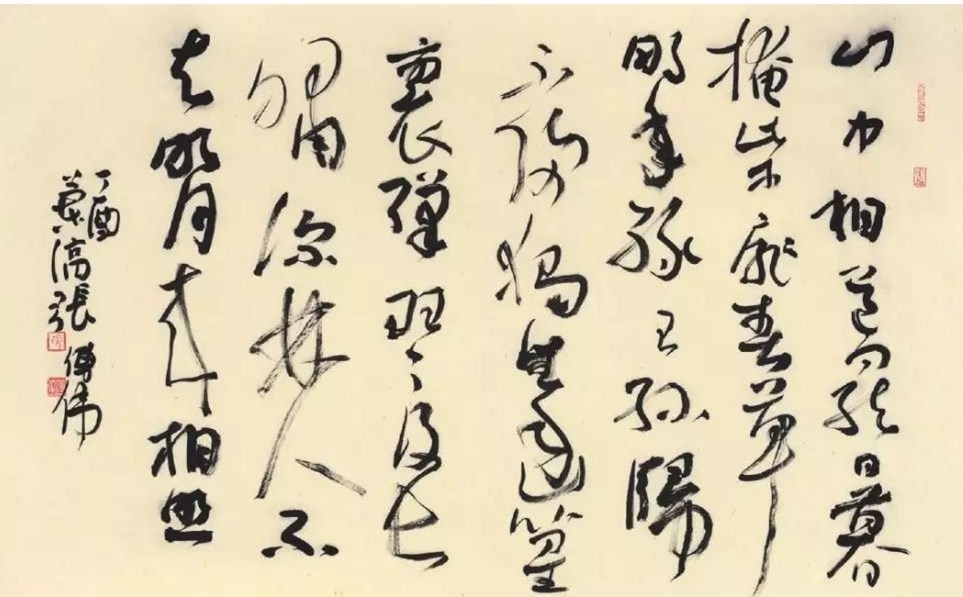 山中相送罷日暮
掩柴扉春草
明年綠王孫歸
不歸獨坐幽篁
裏彈琴復長
嘯深林人不
知明月來相照
丁酉
張偉